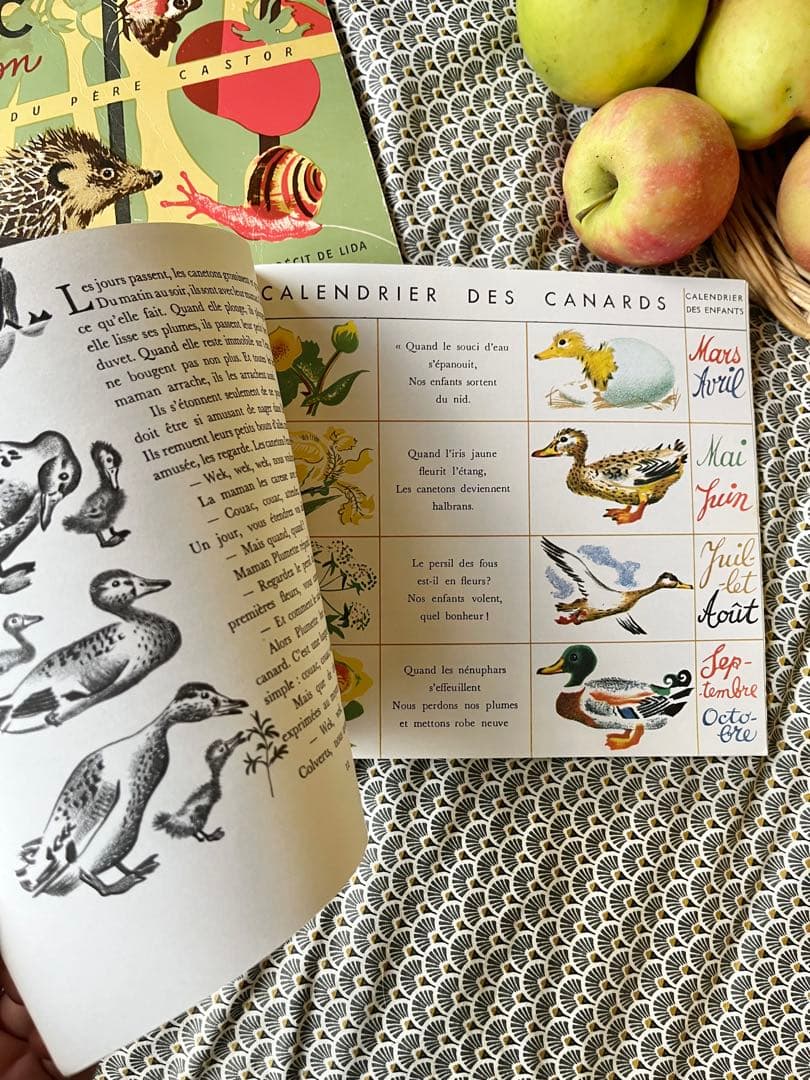 C
on
DU PÈRE CASTOR
RÉCIT DE LIDA
Les jours passent, les canetons grossissent
Du matin au soir, ils sont avec leur
ce qu'elle fait. Quand elle plonge, ils
elle lisse ses plumes, ils passent leur petit
duvet. Quand elle reste immobile
ne bougent pas non plus. Et toutes
maman arrache, ils les arrachent
Ils s'étonnent seulement de ne
doit être si amusant de nager dans
Ils remuent leurs petits bouts d'
amusée, les regarde. Les canetons
— Wek, wek, wek, nous
La maman les caresse
— Couac, couac,
Un jour, vous étendrez
— Mais quand, quand
Maman Plumette
— Regardez le
premières fleurs, vous
— Et comment
Alors Plumette
canard. C'est une
simple : couac,
Mais que de
exprimées au
— Wek,
Colverts,
CALENDRIER DES CANARDS
CALENDRIER
DES ENFANTS
« Quand le souci d'eau
s'épanouit,
Nos enfants sortent
du nid.
Mars
Avril
Quand l'iris jaune
fleurit l'étang,
Les canetons deviennent
halbrans.
Mai
Juin
Le persil des fous
est-il en fleurs?
Nos enfants volent,
quel bonheur !
Juil-
-let
Août
Quand les nénuphars
s'effeuillent
Nous perdons nos plumes
et mettons robe neuve
Sep-
-tembre
Octo-
-bre